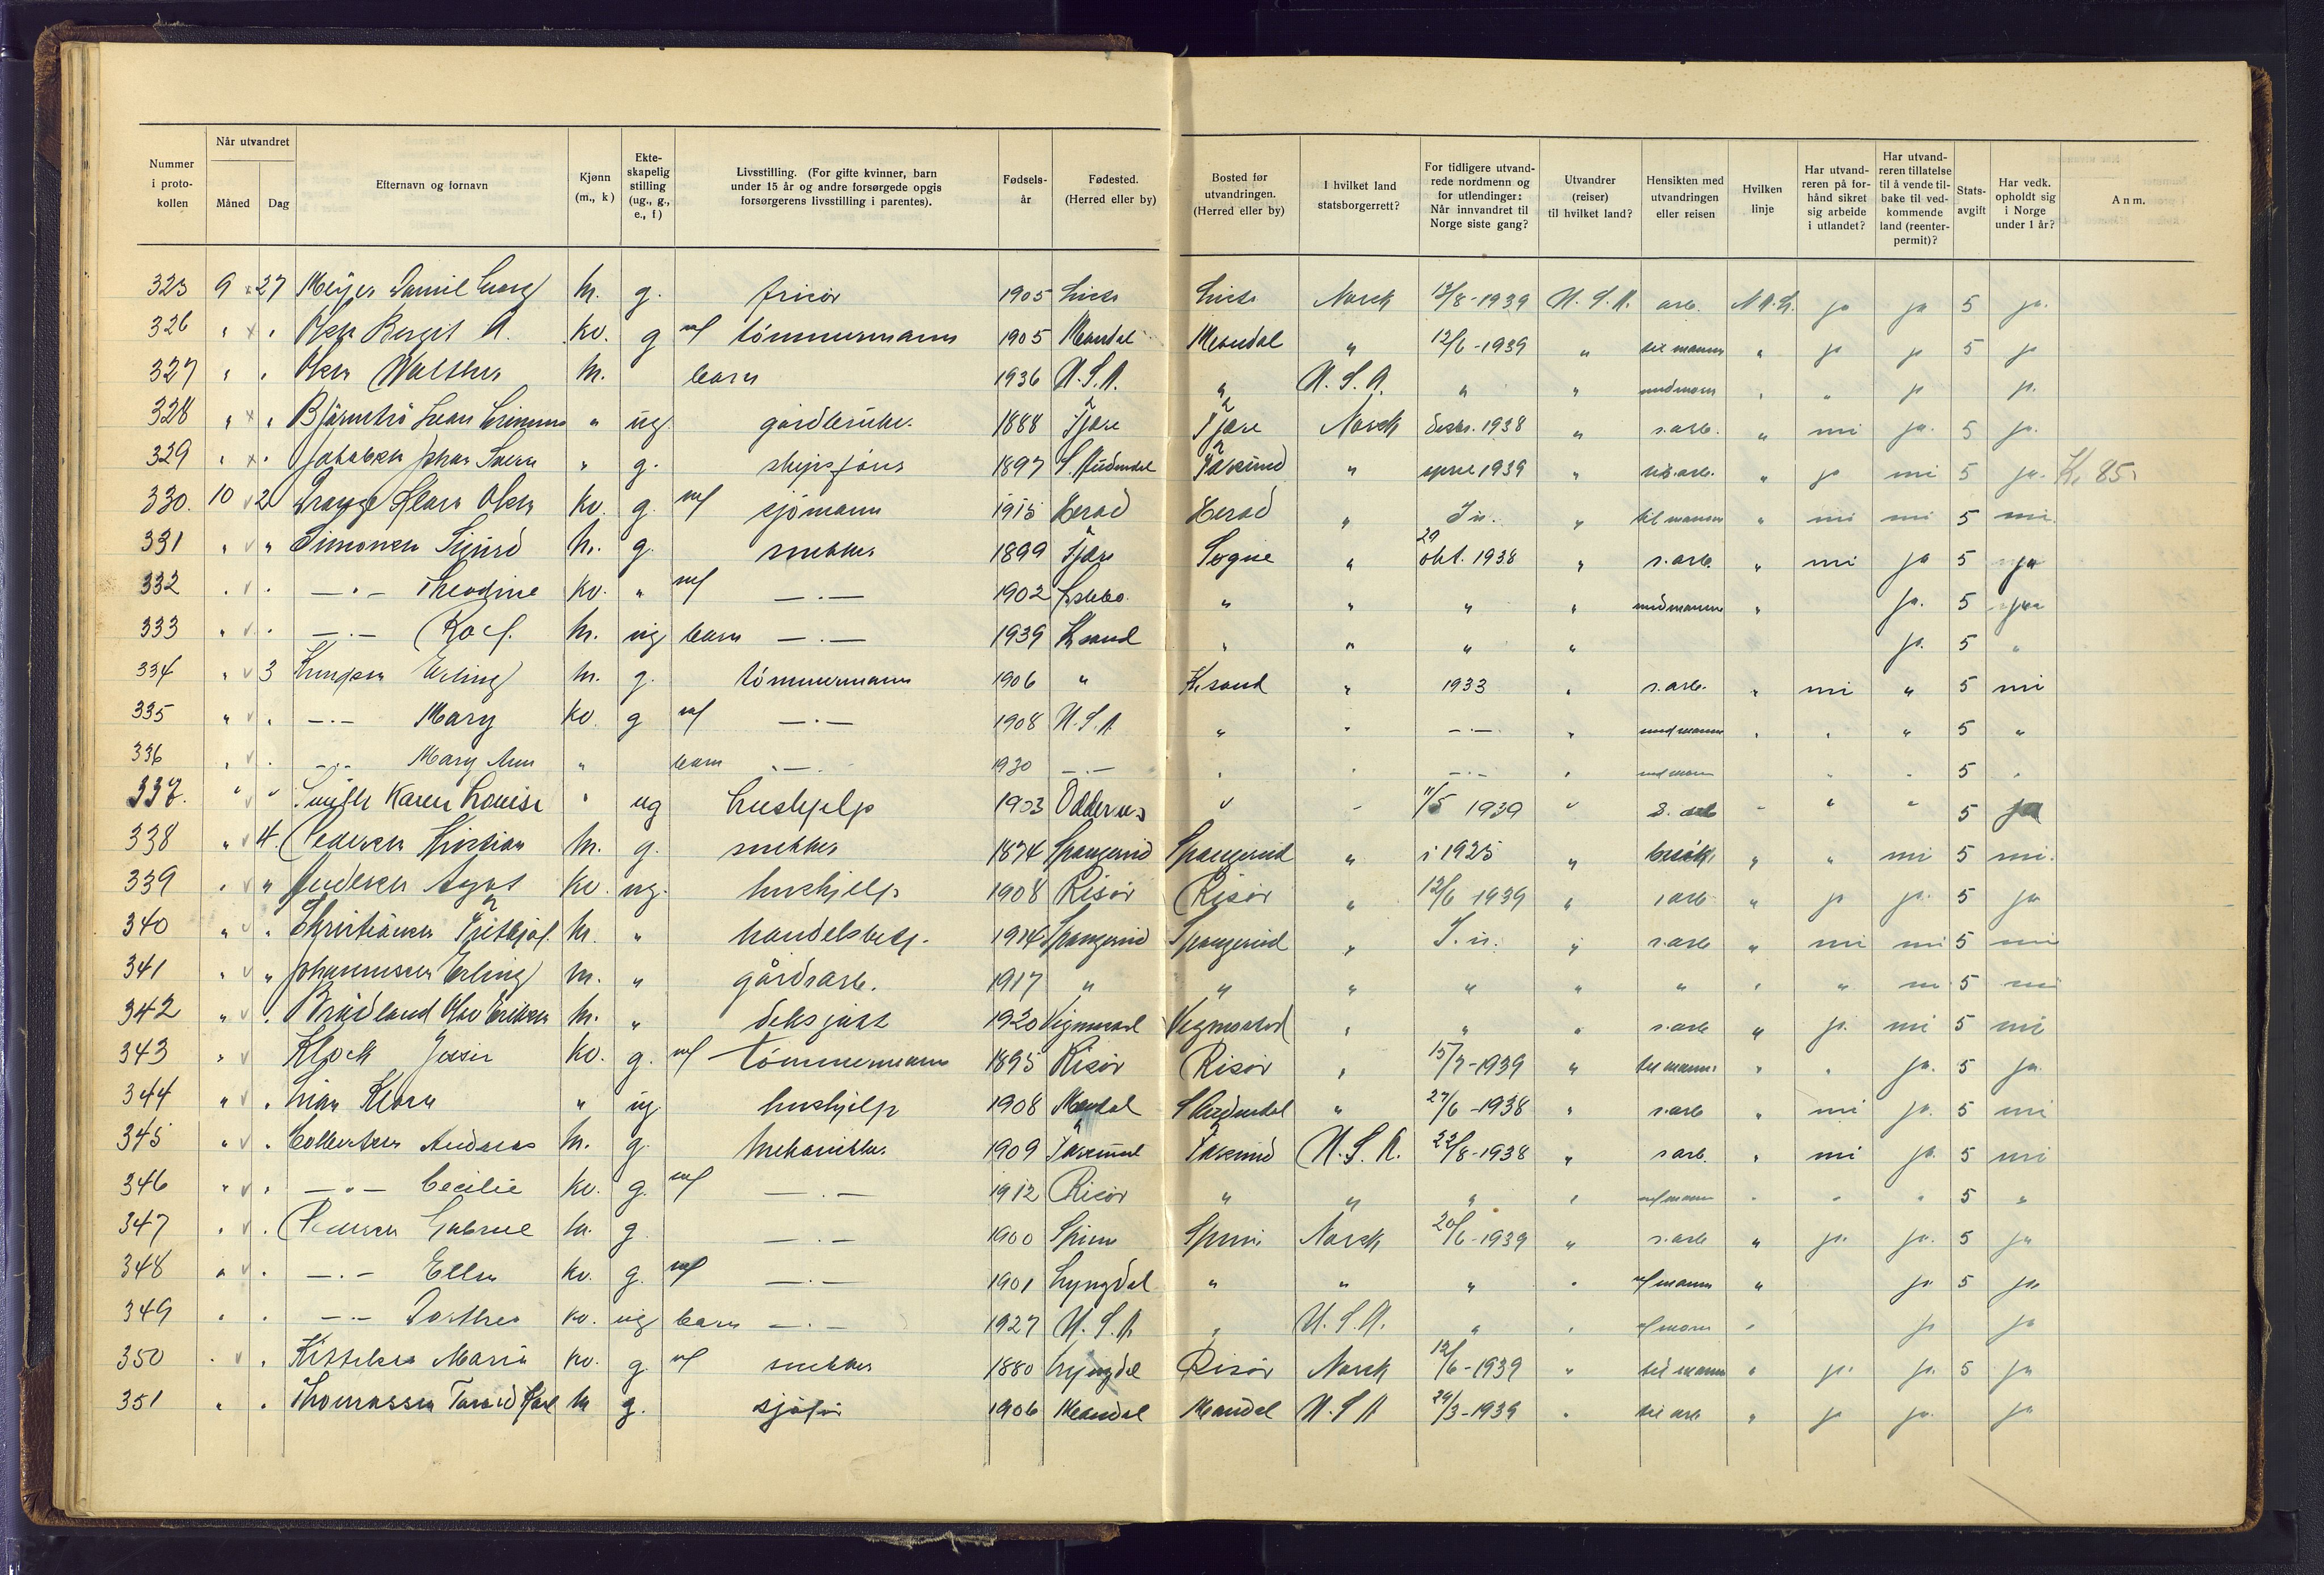 Nummer i proto-kollen | Når utvandret Måned Dag | Efternavn og fornavn | Kjønn (m., k) | Ekte-skapelig stilling (ug., g., e., f) | Livsstilling. (For gifte kvinner, barn under 15 år og andre forsørgede opgis forsørgerens livsstilling i parentes). | Fødsels-år | Fødested. (Herred eller by) | Bosted før utvandringen. (Herred eller by) | I hvilket land statsborgerrett? | For tidligere utvand-rede nordmenn og for utlendinger: Når innvandret til Norge siste gang? | Utvandrer (reiser) til hvilket land? | Hensikten med utvandringen eller reisen | Hvilken linje | Har utvand-reren på for-hånd sikret sig arbeide i utlandet? | Har utvand-reren tillatelse til å vende til-bake til ved-kommende land (reenter-permit)? | Stats-avgift | Har vedk. opholdt sig i Norge under 1 år? | Anm.
325 9 27 Meyer Daniel Georg m. g. frisør 1905 Norsk 12/8-1939 U.S.A. arb. N.A.L. ja ja 5 ja.
326 " " Olsen Bergit A. kv. g m/ tömmermann 1905 Mandal Mandal " 12/6-1939 " til mann " ja ja 5 ja
327 " " Olsen Walther m. barn 1936 U.S.A. " U.S.A. " " med mor " " ja ja.
328 " " " ug gårdbruker 1888 Fjære Fjære Norsk desbr. 1938 " s. arb. " nei ja. 5 ja.
329 " " Jakobsen Johan " g. 1897 S. Audnedal Farsund " april 1939 " " ja nei 5 ja. Kr 85.
330. 10 2 Olsen kv. g. m/ sjømann 1915 Herad Herad " " til mann " nei nei 5 nei.
331 " " Simonsen Sigurd m. g. snekker 1899 Fjære Søgne " 29 okt. 1938 " s. arb. " nei ja 5 ja
332 " " —"— Theodine kv. " m/ —"— 1902 " " " " med mann " ja. 5
333 " " —"— Rolf. m. ug barn —"— 1939 Kr.sand " " " " ja. 5 "
334 " 3 Knudsen Erling m. g. tömmermann 1906 " Kr.sand " 1933 " s. arb. " nei " 5 nei
335 " " —"— Mary kv. g m/ —"— 1908 U.S.A " " —"— " med mann " " " 5 "
336 " " —"— Mary Ann " barn —"— 1930 —"— " " —"— " " " 5 "
337. " " Smith Karen Louise " ug hushjelp 1903 Oddernes " " 11/5 1939 " s. arb " " " 5 ja
338 " 4. Pedersen Kristian m. g. snekker 1874 Spangereid Spangereid " i 1925 " besøk " " nei 5 nei.
339 " " Andersen Agnes kv. ug. hushjelp 1908 Risør Risør " 12/6 1939 " s arb " ja ja. 5 ja
340 " " Christiansen Frithjof. m. " handelsbetj. 1914 Spangereid Spangereid " " s arb " nei nei 5 nei
341 " " Johannessen Erling m. " gårdsarb. 1917 " " " " " " " " nei 5 nei
342 " " Brådland Olav Eriksen m. " deksgutt 1920 Vigmostad Vigmostad " " " s. arb " ja. nei 5 nei
343 " Klock Jessie kv. g. m/ tömmermann 1895 Risør Risør " 15/7-1939 " til mann " " ja. 5 ja.
344 " " Klara " ug hushjelp 1908 Mandal S Audnedal " 27/6-1938 " s. arb " nei ja. 5 nei
345 " " Andreas m. g. mekaniker 1909 Farsund Farsund U.S.A. 22/8-1938 " s arb. " nei ja. 5 nei
346 " " —"— Cecilie kv. g. m/ —"— 1912 Risør " " " " m/ mann " " " 5 "
347 " " Pedersen Gabriel m. g —"— 1900 Spind Spind Norsk 20/6-1939 " s. arb " ja. ja. 5 ja
348 " " —"— Ellen kv. g. m/ —"— 1901 Lyngdal " " " " m/ mann " ja 5 ja
349 " " —"— Dorthea kv. ug barn —"— 1927 U.S.A. " U.S.A. " " m/ mor " ja ja
350 " " Maria kv. g m/ snekker 1880 Lyngdal Risør Norsk 12/6-1939 " til mann " ja. ja. 5 ja
351 " " Thomassen Karl m g. sjåfør 1906 Mandal Mandal U.S.A 24/3-1939 " til arb " ja ja. ja